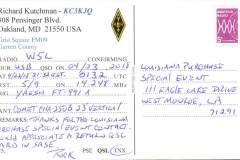 Richard Kutchman - KC3KJQ
308 Pensinger Blvd.
Oakland, MD 21550 USA
Grid Square FM09
Garrett County
RADIO W5L CONFIRMING
USB QSO ON 04/23 2018
0132 UTC
RST 5/9 ON 14.248 MHz
RIG YAESU FT-991A
ANT COMET CHA 250B 23' VERTICAL
REMARKS THANKS FOR THE LOUISIANA
PURCHASE SPECIAL EVENT CONTACT.
WOULD APPRECIATE RETURN QSL
CARD IN SASE.
PSE QSL TNX
LOUISIANA PURCHASE
SPECIAL EVENT
111 EAGLE LAKE DRIVE
WEST MONROE, LA
71291